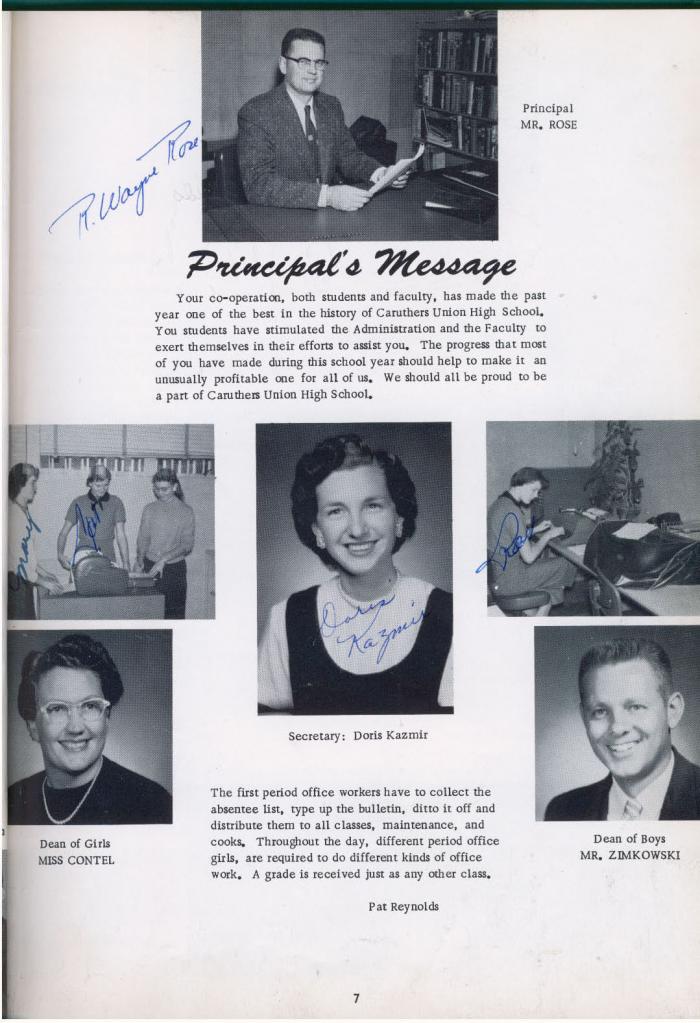 Principal
MR. ROSE
R. Wayne Rose
Principal's Message
Your co-operation, both students and faculty, has made the past
year one of the best in the history of Caruthers Union High School.
You students have stimulated the Administration and the Faculty to
exert themselves in their efforts to assist you. The progress that most
of you have made during this school year should help to make it an
unusually profitable one for all of us. We should all be proud to be
a part of Caruthers Union High School.
Mary
Pat
Doris
Kazmir
Secretary: Doris Kazmir
Dean of Girls
MISS CONTEL
The first period office workers have to collect the
absentee list, type up the bulletin, ditto it off and
distribute them to all classes, maintenance, and
cooks. Throughout the day, different period office
girls, are required to do different kinds of office
work. A grade is received just as any other class.
Pat Reynolds
Dean of Boys
MR. ZIMKOWSKI
7